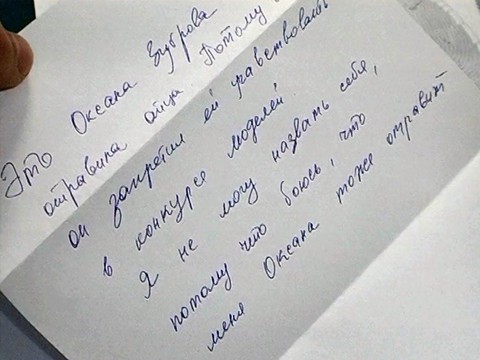 Это Оксана Зуброва
отравила отца. Потому
он запретил ей учавствовать
в конкурсе моделей
Я не могу назвать себя,
потому что боюсь, что
меня Оксана тоже отравит